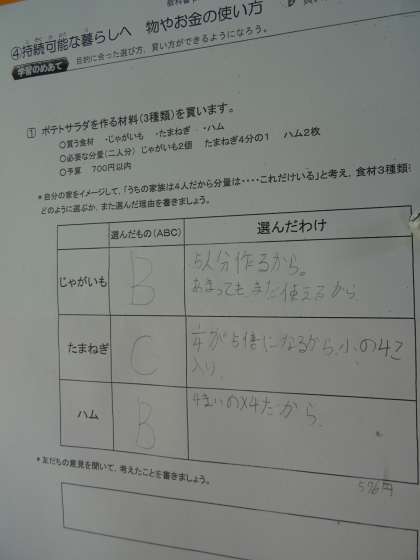 ④持続可能な暮らしへ 物やお金の使い方
学習のめあて 目的に合った選び方、買い方ができるようになろう。
1 ポテトサラダを作る材料(3種類)を買います。
○買う食材 ・じゃがいも ・たまねぎ ・ハム
○必要な分量(二人分) じゃがいも2個 たまねぎ4分の1 ハム2枚
○予算 700円以内
*自分の家をイメージして、「うちの家族は4人だから分量は・・・・これだけいる」と考え、食材3種類
どのように選ぶか、また選んだ理由を書きましょう。
選んだもの(ABC) 選んだわけ
じゃがいも B 5人分作るから。
あまっても、まだ使えるから
たまねぎ C 1/4が5倍になるから、小の4こ
入り。
ハム B 4まいの×4だから。
596円
*友だちの意見を聞いて、考えたことを書きましょう。